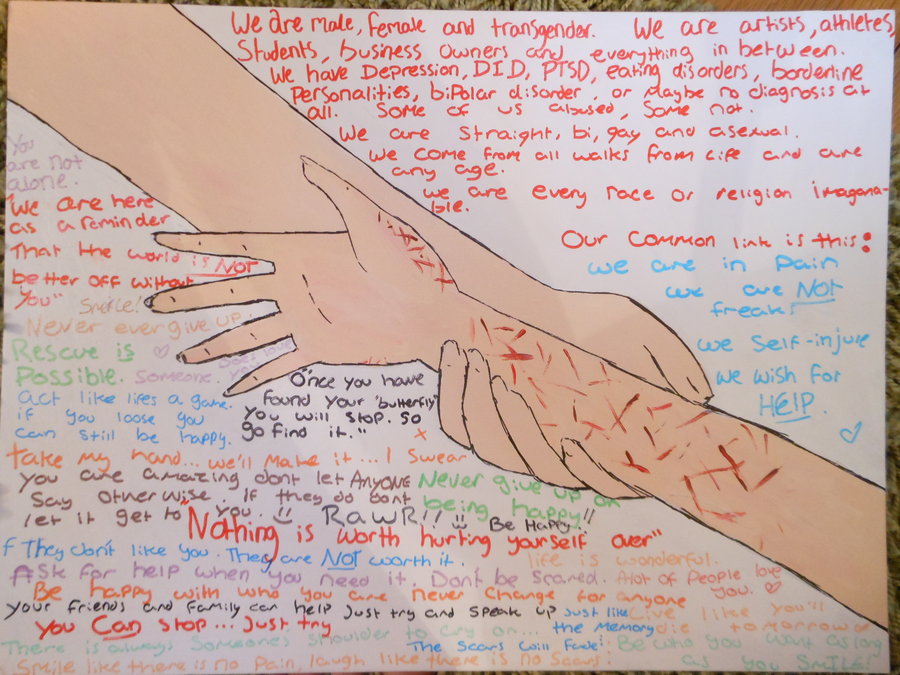 We are male, female and transgender. We are artists, athletes,
Students, business owners and everything in between.
We have Depression, DID, PTSD, eating disorders, borderline
Personalities, biPolar disorder, or Maybe no diagnosis at
all. Some of us abused, Some not.
We are Straight, bi, gay and asexual.
We come from all walks from Life and are
any age.
We are every race or religion imagana-
ble.
Our Common link is this:
We are in Pain
We are NOT
freaks
We self-injure
We wish for
HELP.
You
are not
alone.
"We are here
as a reminder
That the world is NOT
better off without
You"
Smile!
Never ever give up.
Rescue is
Possible.
Someone does love
you
act like lifes a game.
if you loose you
can still be happy.
Once you have
found your 'butterfly'
You will stop. So
go find it."
x
take my hand... we'll make it... I swear
You are amazing dont let Anyone
Say otherwise. If they do dont
let it get to you. :)
Never give up on
being happy!!
RawR!! :)
Be Happy.
"Nothing is worth hurting yourself over"
If They don't like you. They are NOT worth it.
life is wonderful.
Ask for help when you need it. Don't be Scared.
A lot of People love
you.
Be happy with who you are never Change for anyone
Your friends and family can help Just try and Speak up
Just like
the Memory
The Scars will fade!
Live like you'll
die tomorrow
You Can Stop... Just try
There is always Someones Shoulder to cry on...
Be who you want as long
as you SMILE!
Smile like there is no Pain, laugh like there is no Scars!